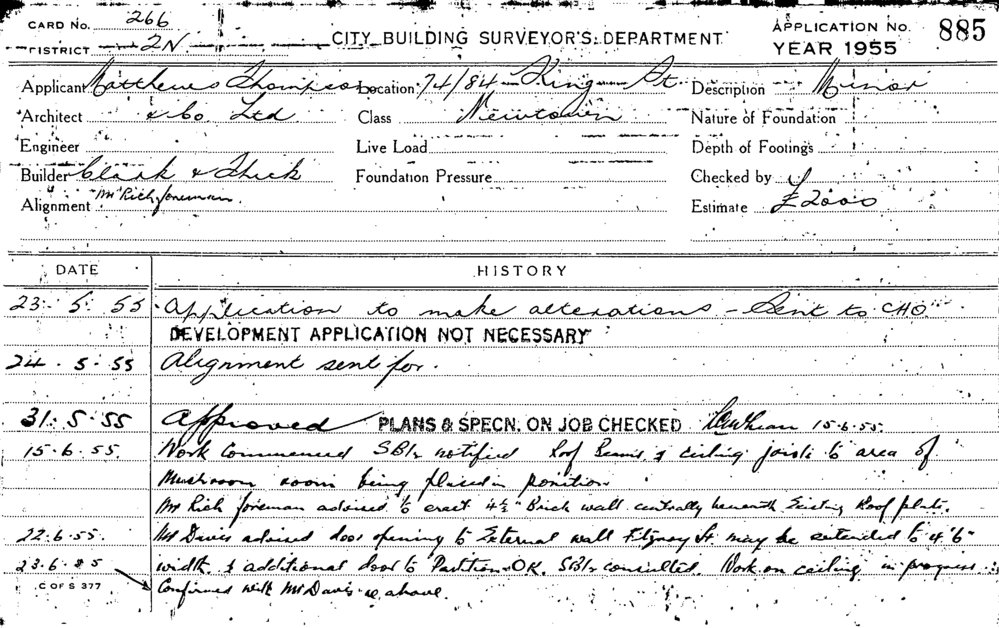 CARD NO. 266
DISTRICT 2N
CITY BUILDING SURVEYOR'S DEPARTMENT
APPLICATION NO. 885
YEAR 1955
Applicant Matthews Thompson Location 74/84 King St. Description Minor
Architect & Co Ltd Class Newtown Nature of Foundation
Engineer Live Load Depth of Footings
Builder Clark & Thick Foundation Pressure Checked by
Alignment Mr Rich foreman. Estimate £2000
DATE HISTORY
23. 5. 55 Application to make alterations - Sent to CHO
DEVELOPMENT APPLICATION NOT NECESSARY
24. 5. 55 Alignment sent for.
31. 5. 55 Approved PLANS & SPECN. ON JOB CHECKED 15.6.55.
15.6.55. Work Commenced notified Roof Beams & ceiling joists to area of
Mushroom room being placed in position
Mr Rich foreman advised to erect 4½" Brick wall centrally beneath Existing Roof plate.
22.6.55. Mr Davis advised door opening to External wall Fitzroy St may be extended to 4'6"
23.6.55 width & additional door to Partition OK. consulted. Work on ceiling in progress.
C OF S 377 Confirmed with Mr Davis as above.